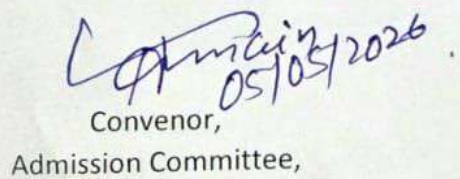 05/05/2026
Convenor,
Admission Committee,